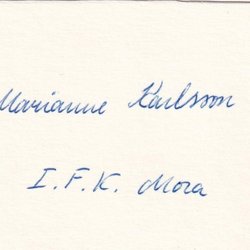 Marianne Karlsson
I.F.K. Mora